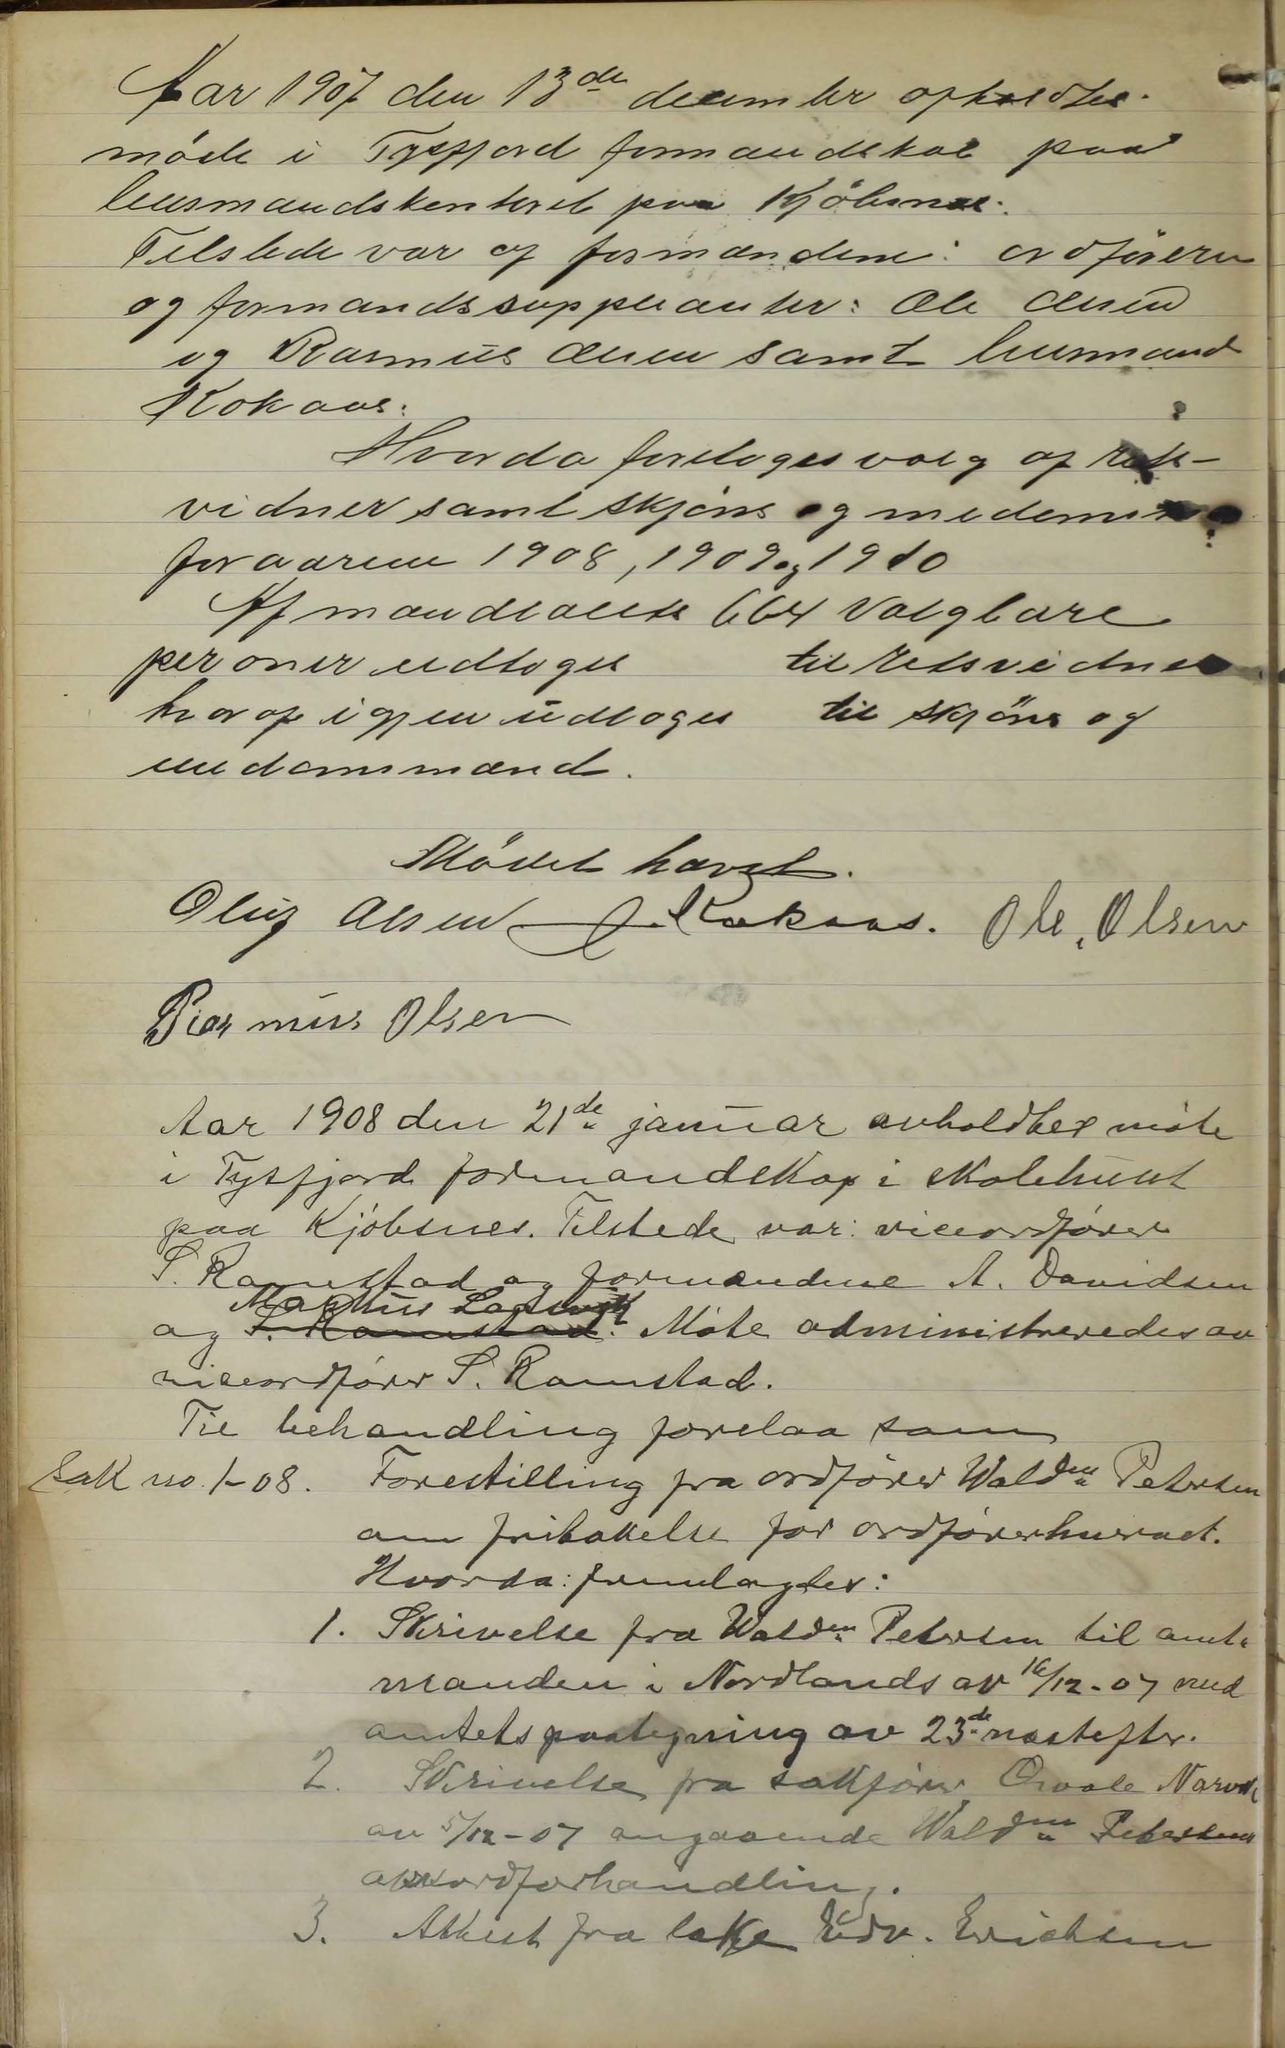 Aar 1907 den 13de december opholdtes
møde i Tysfjord formandskab paa
lensmandskontoret paa Kjöbsnes.
Tilstede var af formændene: ordføreren
og formandssuppleanter: Ole Olsen
og Rasmus Olsen samt lensmand
Kokaas.
Hvorda foretoges valg af rets-
vidner samt skjöns og meddomsmænd
for aarene 1908, 1909 og 1910
Af mandtallets 664 valgbare
personer udtoges til retsvidner
hvoraf igjen udtoges til skjöns og
meddommænd.
Mödet hævet.
Oluf Olsen Kokaas. Ole. Olsen
Rasmus Olsen
Aar 1908 den 21de januar avholdtes møte
i Tysfjord formandskap i skolehuset
paa Kjöbsnes. Tilstede var: viceordfører
S. Ramstad og formændene A. Davidsen
Markus
og S. Ramstad. Møte administreredes av
viceordfører S. Ramstad.
Til behandling forelaa som
Sak no. 1-08. Forestilling fra ordfører Waldem Petersen
om fritakelse for ordførerhvervet.
Hvorda: fremlagtes:
1. Skrivelse fra Waldem Petersen til amt-
manden i Nordlands av 16/12-07 med
amtets paategning av 23de næstefter.
2. Skrivelse fra sakfører Narvik
av 5/12-07 angaaende Waldem Petersens
akkordforhandling.
3. Attest fra læge Edv. Erichsen